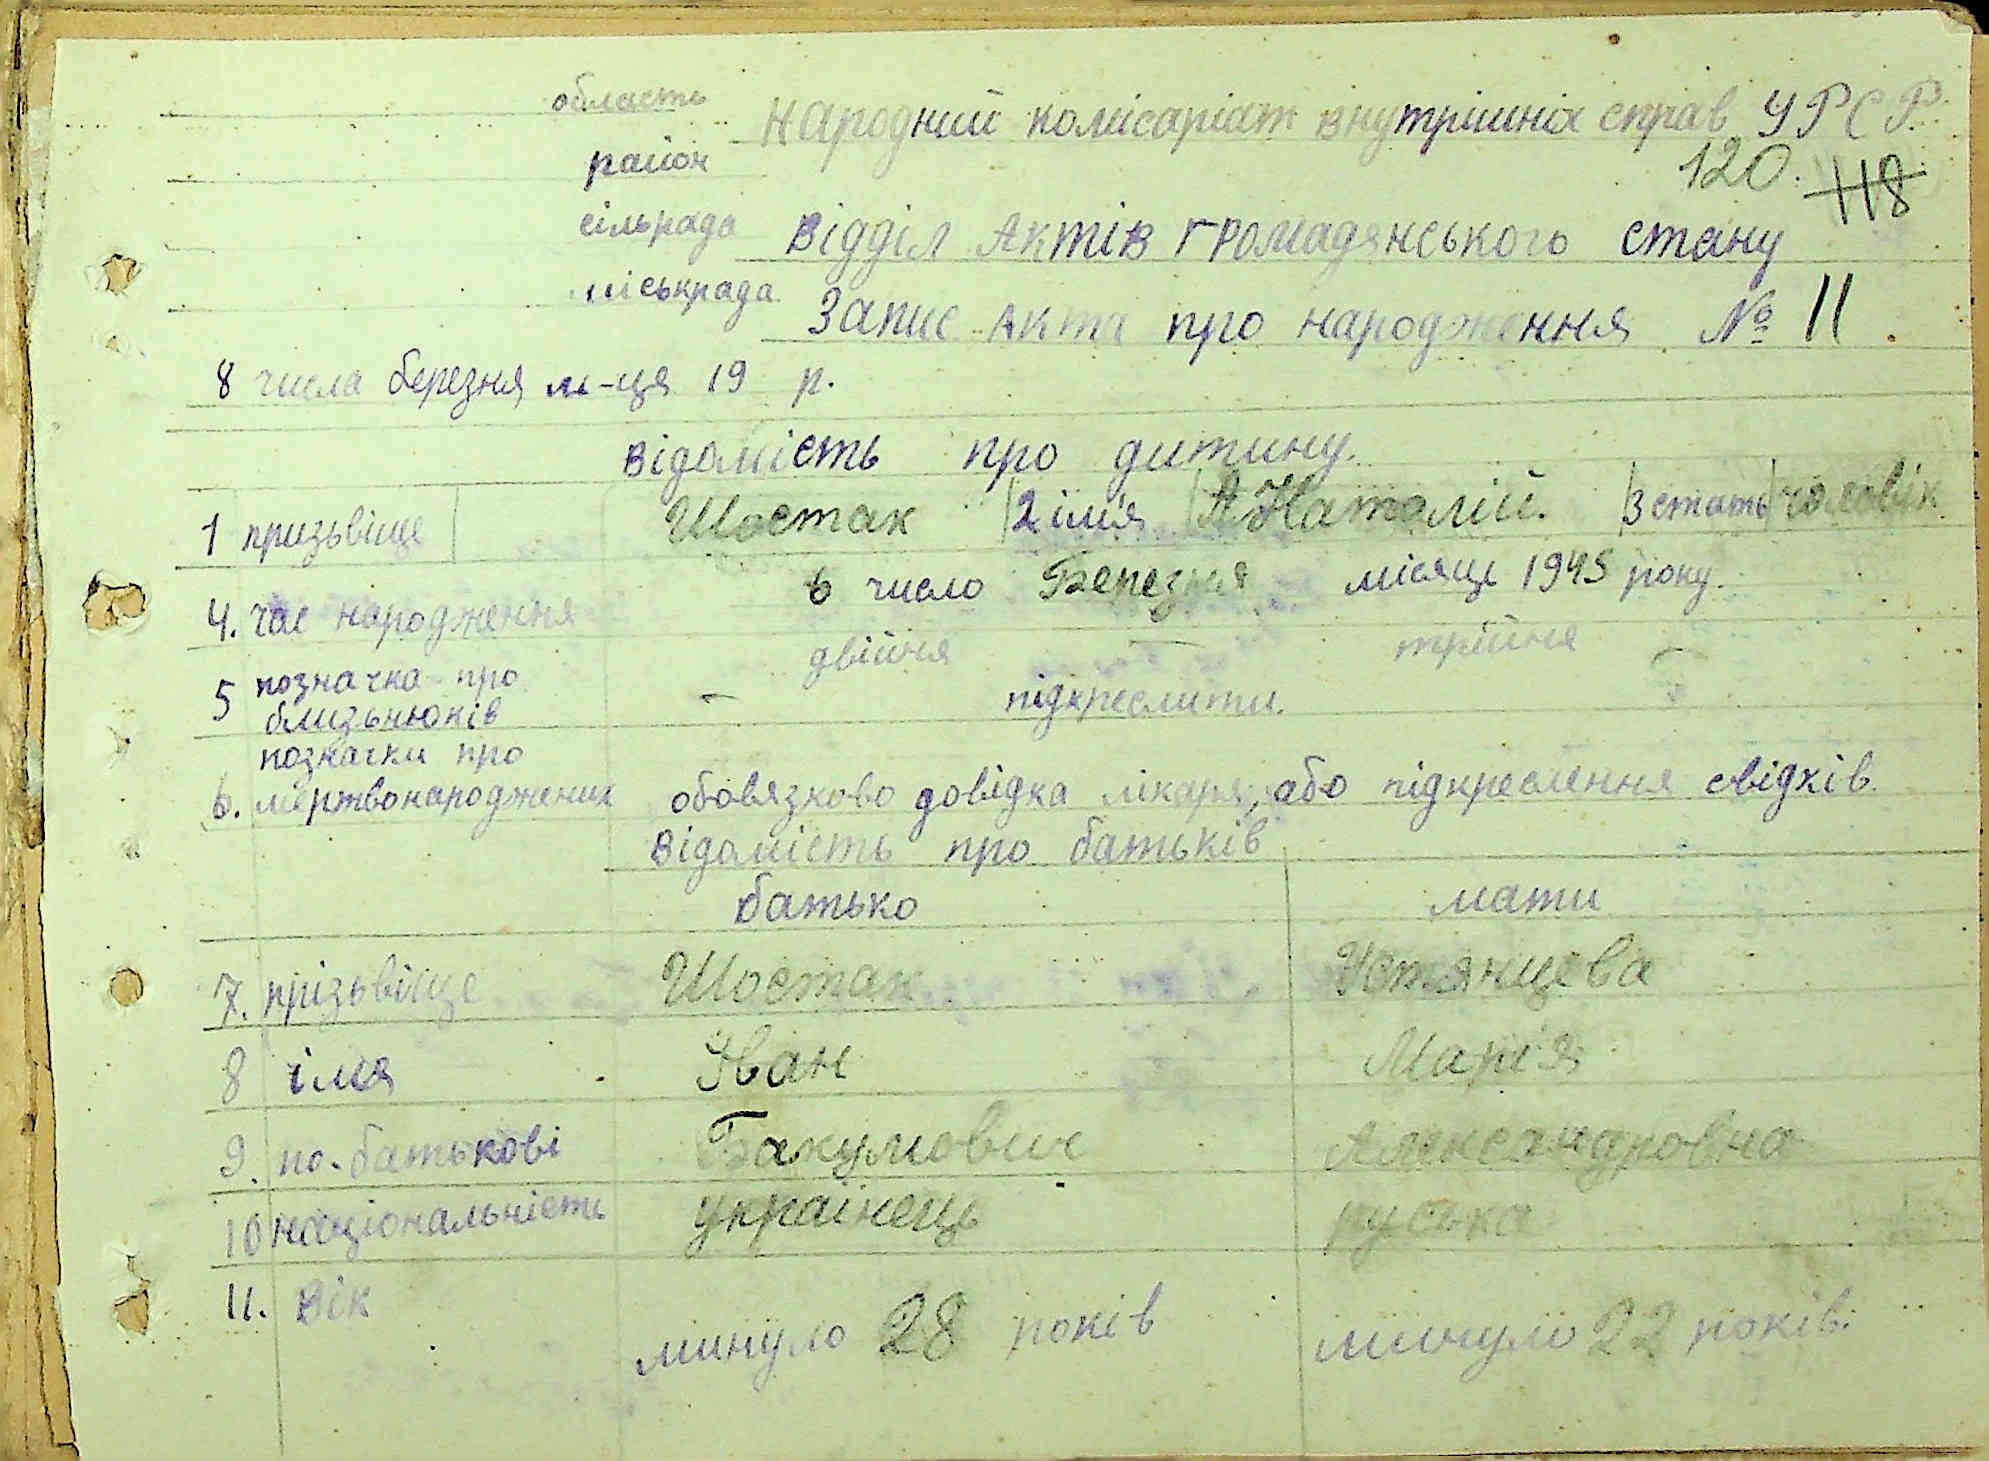 область Народний комісаріат внутрішніх справ УРСР
район 120. 118
сільрада Відділ Актів Громадянського стану
міськрада Запис Акта про народження № 11
8 числа березня м-ця 19 р.
відомість про дитину.
1 призьвіще Шостак 2 імя Анатолій. 3 стать чоловік
4. час народження 6 число Березня місяця 1945 року.
двійня – трійня –
5 позначка про близьнюків – підкреслити.
позначки про
6. мертвонароджених обовязково довідка лікаря, або підкреслення свідків.
Відомість про батьків
батько мати
7. прізьвіще Шостак Устянцева
8 імя Іван Марія
9. по-батькові Бакумович Александровна
10 національність українець руська
11. вік минуло 28 років минуло 22 років.